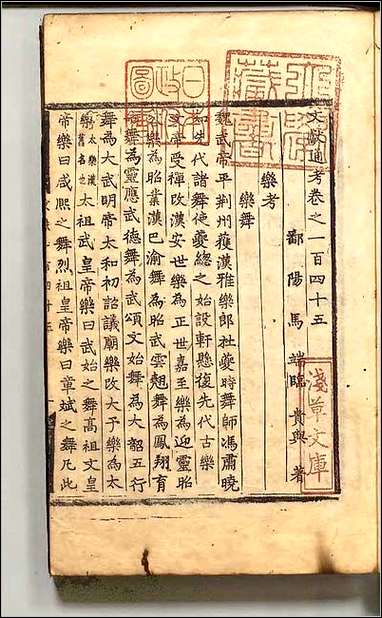 文獻通考卷之一百四十五
鄱陽馬端臨貴與著
樂考
樂舞
魏武帝平荆州獲漢雅樂郎杜夔時舞師馮肅曉
知先代諸舞使夔總之始設軒懸復先代古樂
文帝受禪改漢安世樂為正世嘉至樂為迎靈昭
容樂為昭業漢巴渝舞為昭武雲翹舞為鳳翔育
命舞為靈應武德舞為武頌文始舞為大韶五行
舞為大武明帝太和初詔議廟樂改大予樂為太
樂太樂漢舊名之太祖武皇帝樂曰武始之舞高祖文皇
帝樂曰咸熙之舞烈祖皇帝樂曰章斌之舞凡此
淺草文庫
藏書